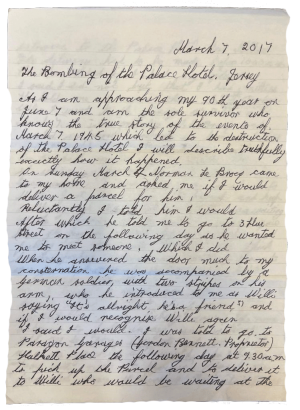 March 7, 2017
The Bombing of the Palace Hotel. Jersey
As I am approaching my 90th year on
June 7 and am the sole survivor who
knows the true story of the events of
March 7, 1945 which led to the destruction
of the Palace Hotel I will describe truthfully
exactly how it happened.
On Sunday March 4 Norman Le Brocq came
to my home and asked me if I would
deliver a parcel for him,
Reluctantly I told him I would
After which he told me to go to 3 Hue
Street on the following day as he wanted
me to meet someone, which I did.
When he answered the door much to my
consternation he was accompanied by a
German soldier with two stripes on his
arm, who he introduced to me as Willi
saying "It's allright he's a friend" and
if I would recognise Willi again
I said I would. I was told to go to
Paragon Garages (Gordon Bennett, Proprietor)
Halkett Place the following day at 9.30am
to pick up the Parcel and to deliver it
to Willi who would be waiting at the